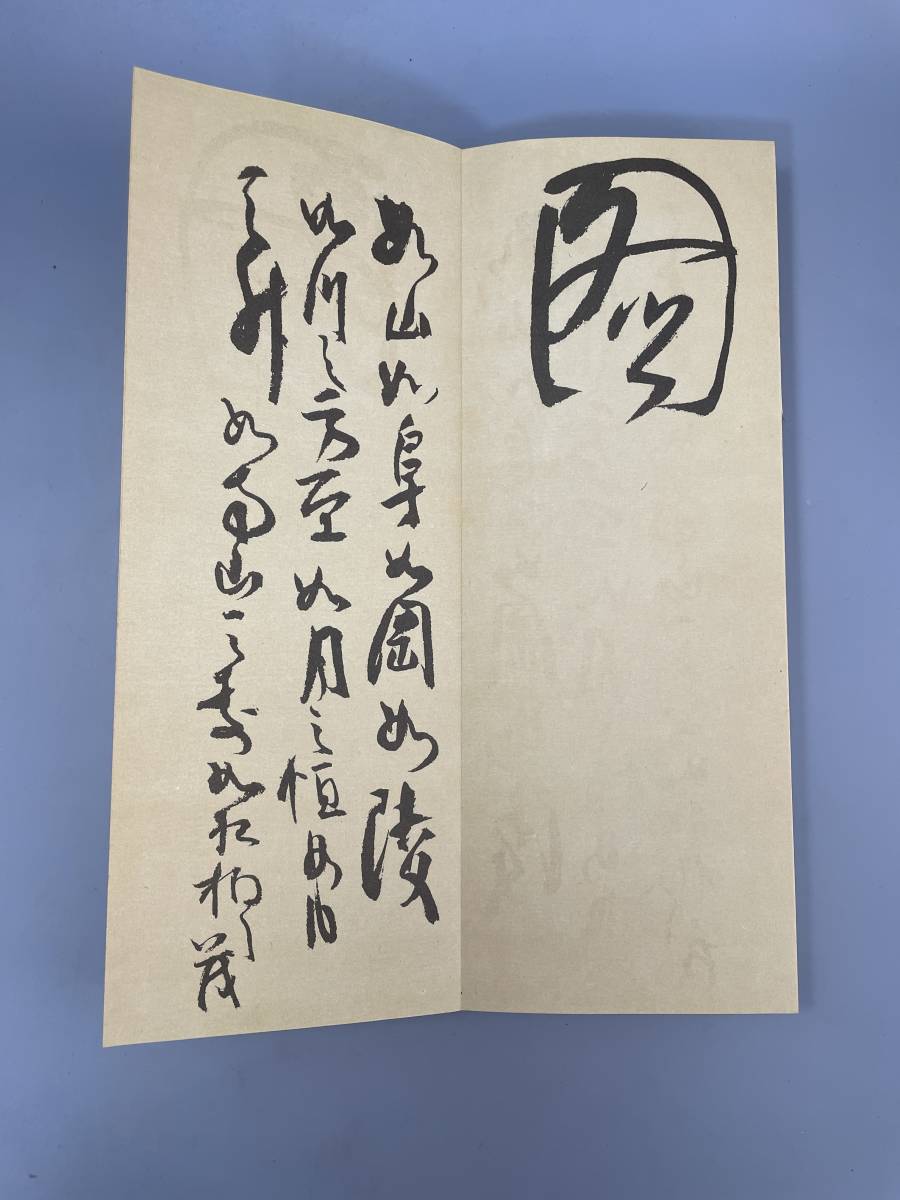 图
如山如阜如岡如陵
如川之方至如月之恒如日
之升如南山之壽如松柏之茂